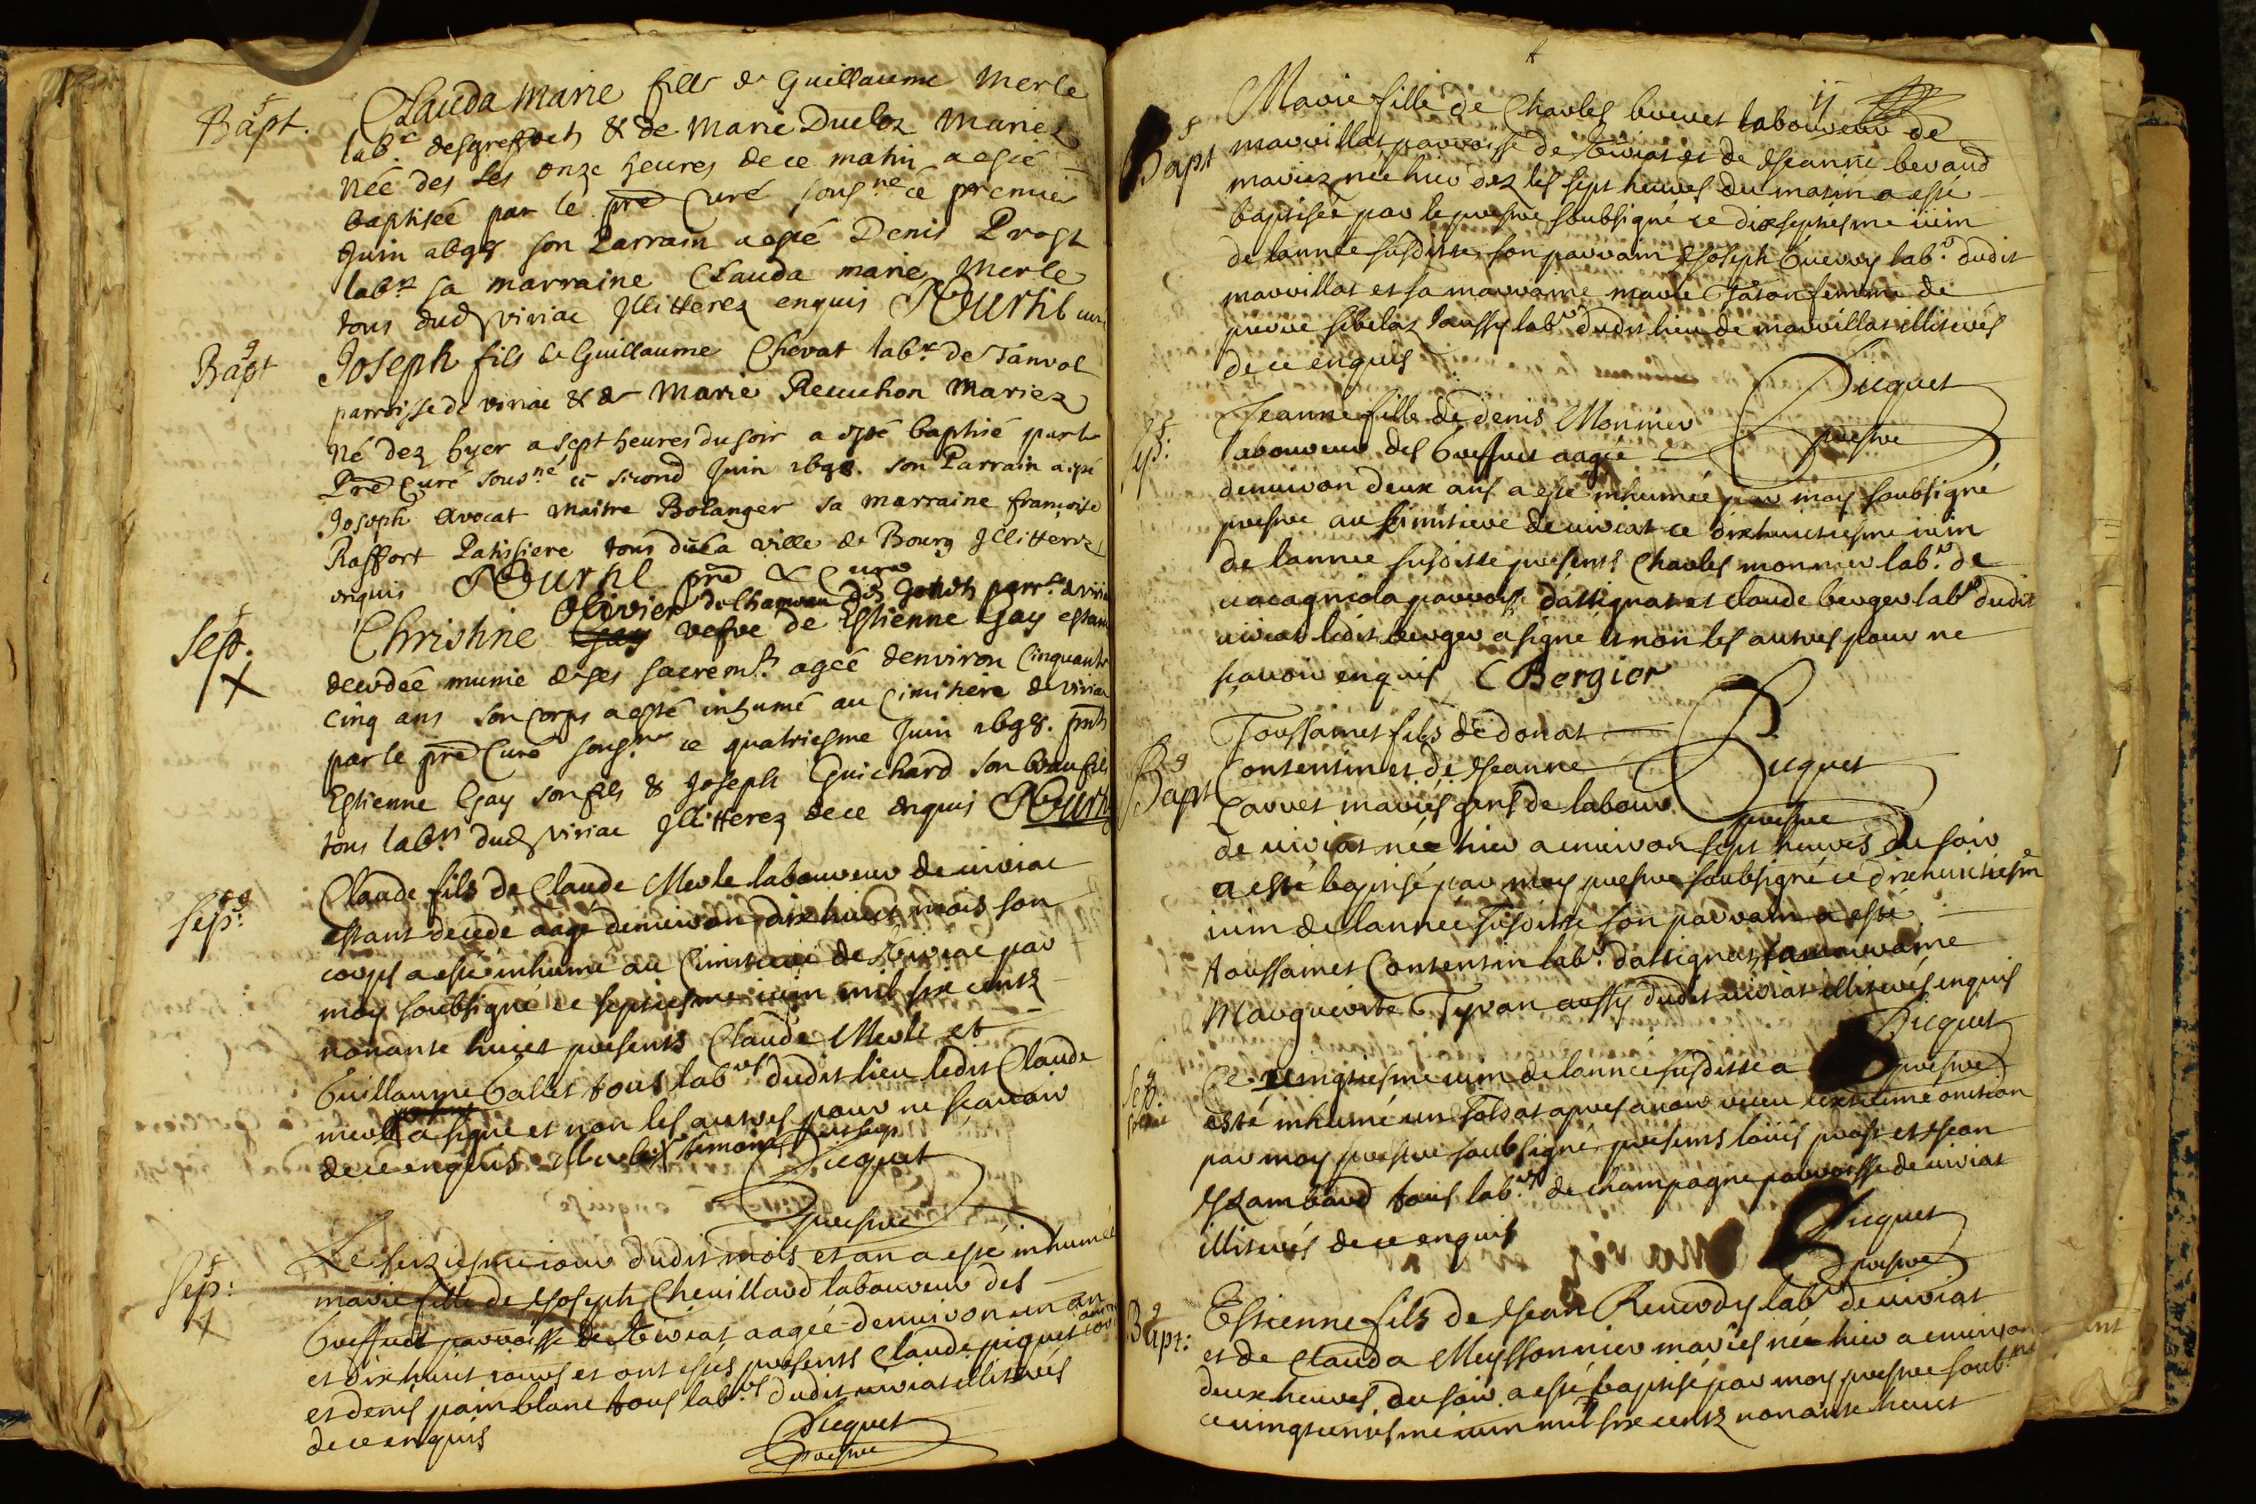 Bapt. Clauda Marie fille de Guillaume Merle
labr desgreffets & de Marie Ducloz Mariez
Née des les onze heures de ce matin a esté
baptisée par le pre Curé sousne ce premier
Juin 1698 son Parrain a esté Denis Prost
labr sa marraine Clauda marie Merle
tous dud viriac Illitterez enquis
Bapt Joseph fils de Guillaume Chevat labr de Tanvol
parroisse de viriac & de Marie Recuchon Mariez
Né dez hyer a sept heures du soir a esté baptisé par le
Pre Curé sousné ce second Juin 1698. son Parrain a esté
Joseph Avocat maitre Bolanger sa marraine françoise
Raffort Patissiere tous de la ville de Bourg Illitterez
enquis pre & Curé
Sep. Christine Olivier vefve de Estienne Gay estant
decedée munie de ses sacremts agée denviron Cinquante
cinq ans son Corps a esté inhumé au Cimitiere de viriac
par le pre Curé sousne ce quatriesme Juin 1698. pnts
Estienne Gay son fils & Joseph Guichard son beau fils
tous labrs dud viriac Illitterez de ce enquis
Sep: Claude fils de Claude Merle laboureur de viriac
estant decedé aagé denviron dix huict mois son
corps a esté inhumé au Cimitiere de viriac par
moy soubsigné ce septiesme iuin mil six cents
nonante huict presents Claude Merle et
Guillaume Gallet tous labrs dudit lieu ledit Claude
merle a signé et non les autres pour ne scavoir
de ce enquis
Picquet
prestre
Sep: Le seiziesme iour dudit mois et an a esté inhumée
marie fille de Joseph Chevillard laboureur des
Greffets parroisse de viriat aagée denviron un an
et dix huict iours et ont estés presents Claude piquet
et denis painblanc tous labrs dudit viriat illiterés
de ce enquis
Picquet
prestre
Bapt Marie fille de Charles buevet laboureur de
marvillat parroisse de viriat et de Jeanne beraud
mariez née hier dez les sept heures du matin a esté
baptisée par le prestre soubsigné ce dixseptiesme iuin
de lannée susditte son parrain Joseph Guerry labr dudit
marvillat et sa marraine marie femme de
pierre aussy labr dudit lieu de marvillat illiterés
de ce enquis
Picquet
prestre
Sep: Jeanne fille de denis Monnier
laboureur des Greffets aagée
denviron deux ans a esté inhumée par moy soubsigné
prestre au simitiere de viriat ce dixhuictiesme iuin
de lannée susditte presents Charles monnier labr de
parroisse dattignat et Claude berger labr dudit
viriat ledit berger a signé et non les autres pour ne
scavoir enquis C Bergier
Picquet
prestre
Bapt Toussainct fils de donat
Contentin et de Jeanne
Carret mariés gens de labour
de viriat née hier a environ sept heures du soir
a esté baptisé par moy prestre soubsigné ce dixhuictiesme
iuin de lannée susditte son parrain a esté
toussainct Contentin labr dattignat sa marraine
Marguerite Tyvan aussy dudit viriat illiterés enquis
Picquet
prestre
Sep: Ce vingtiesme iuin de lannée susditte a
esté inhumé un soldat apres avoir receu lextreme onction
par moy prestre soubsigné presents loüis prost et Jean
Jambard tous labrs de champagne parroisse de viriat
illiterés de ce enquis
Picquet
prestre
Bapt: Estienne fils de Jean Renody labr de viriat
et de Clauda Meyssonnier mariés née hier a environ
deux heures du soir a esté baptisé par moy prestre soubné
ce vingtuniesme iuin mil six cents nonante huict